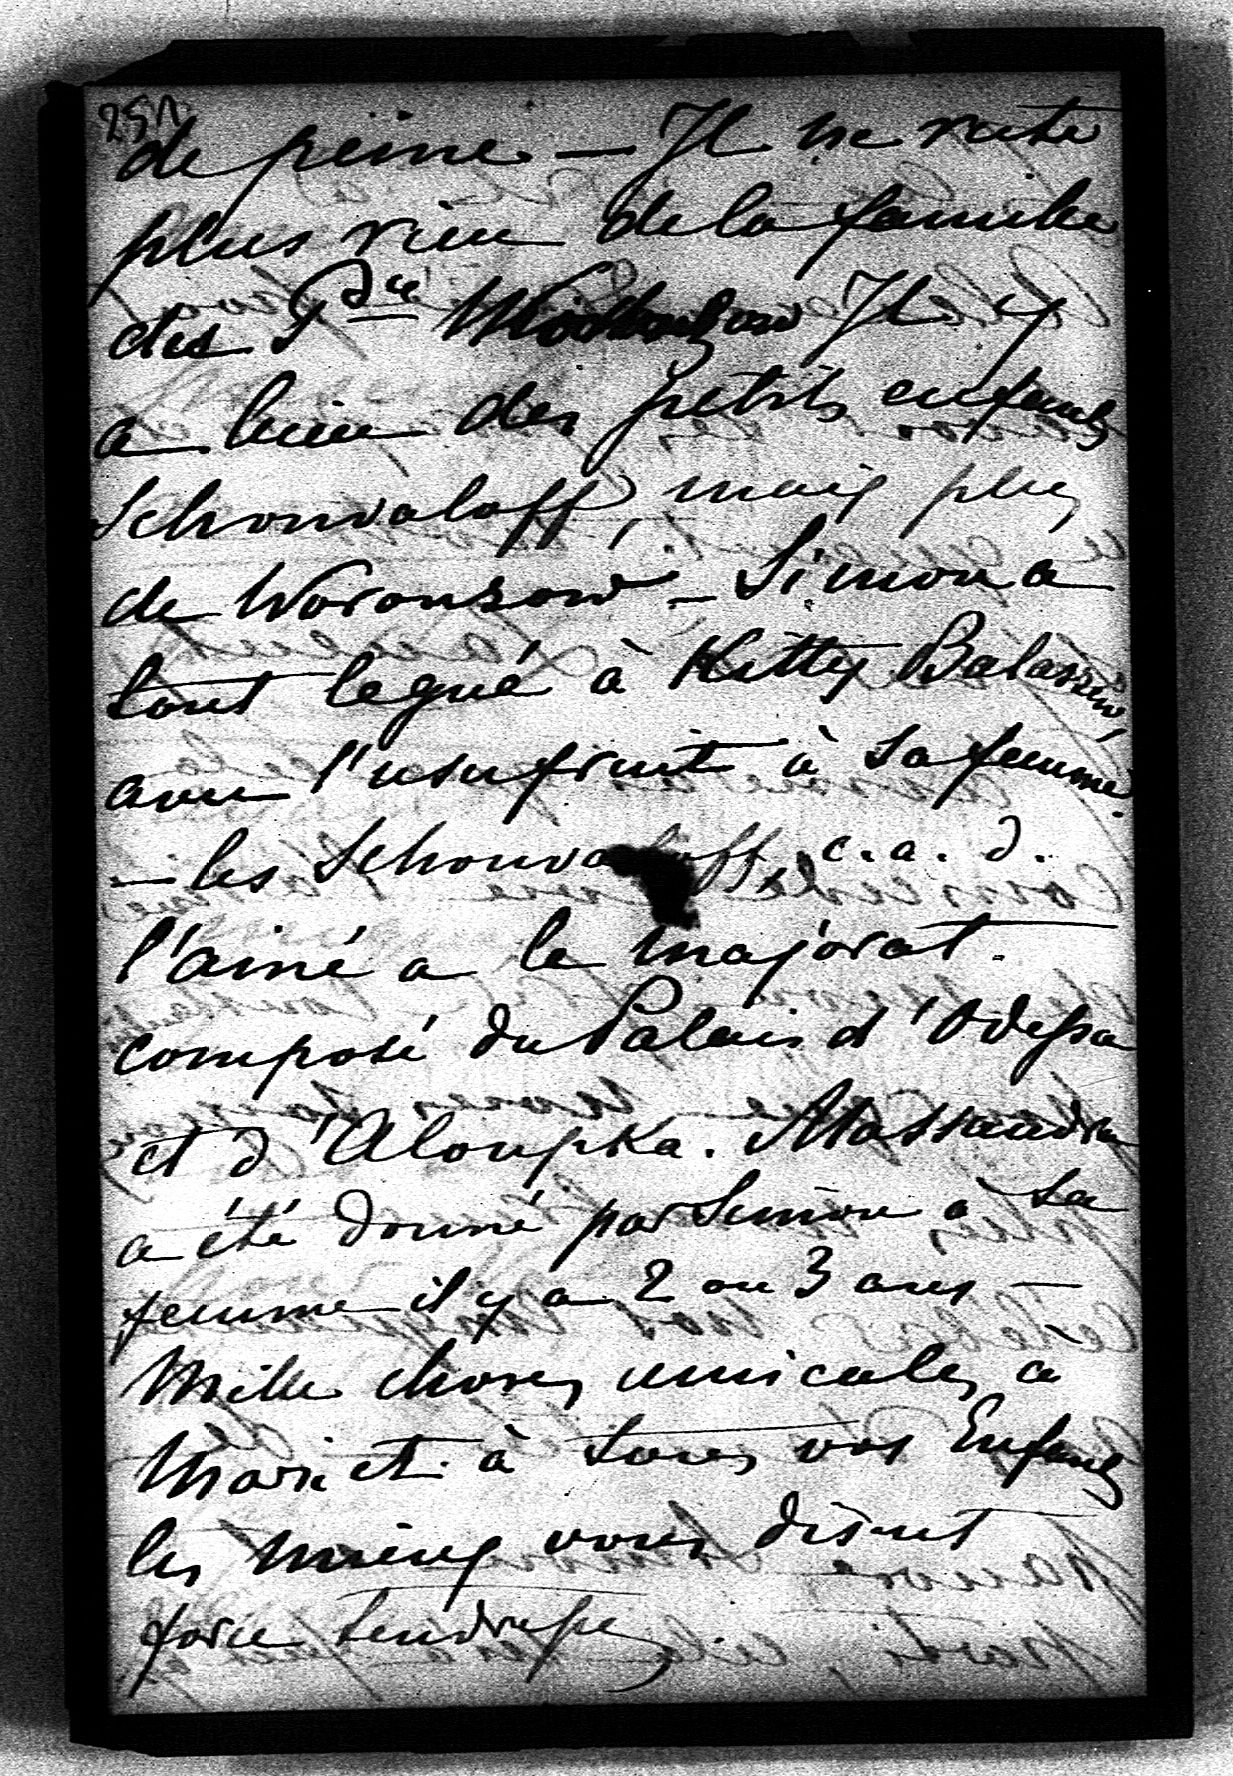 251
de peine — Il ne reste
plus rien de la famille
des Pce Woronzow Il y
a bien des petits enfants
Schouvaloff, mais plus
de Woronzow — Simon a
tout legué à Kitty Balaszew,
avec l'usufruit à sa femme.
— les Schouvaloff, c. a. d.
l'ainé a le majorat.
composé du Palais d'Odessa
et d'Aloupka. Massandra
a été donné par Simon à sa
femme il y a 2 ou 3 ans —
Mille choses amicales a
Marie et à tous vos Enfants
les miens vous disent
force tendresses